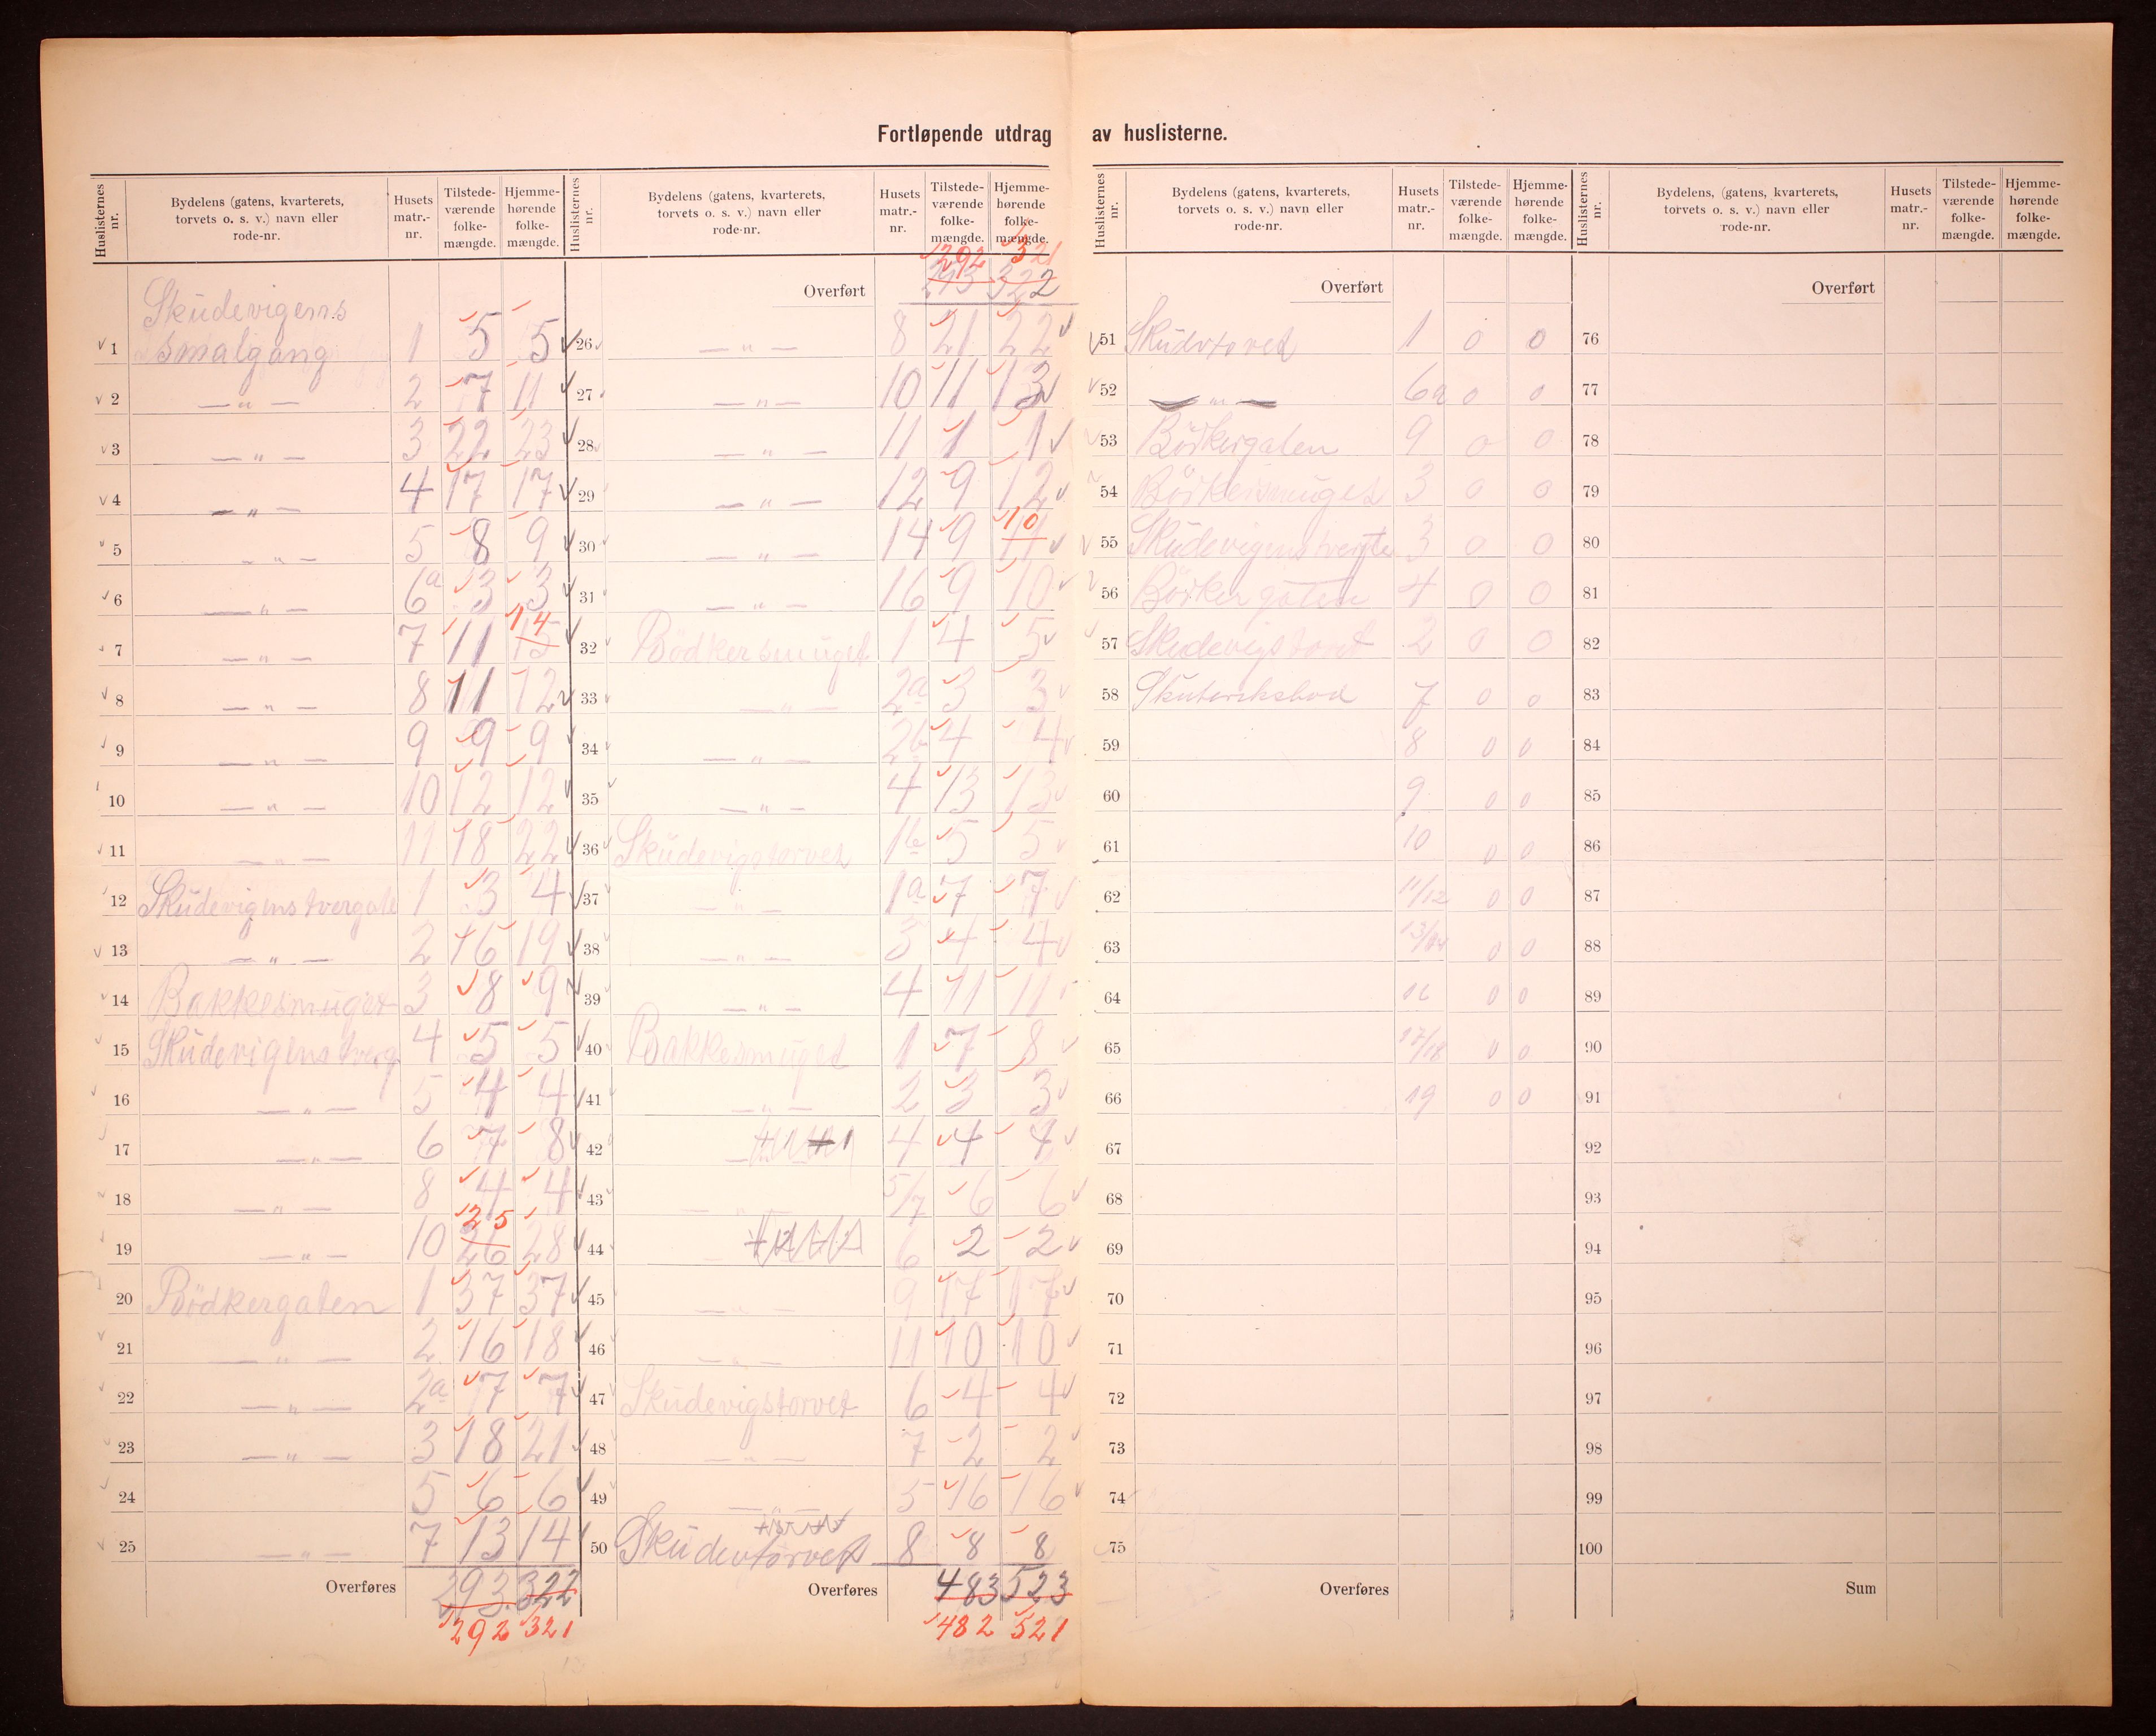 Fortløpende utdrag av huslisterne.
Huslisternes nr.
Bydelens (gatens, kvarterets, torvets o. s. v.) navn eller rode-nr.
Husets matr.-nr.
Tilstedeværende folkemængde.
Hjemmehørende folkemængde.
Skudevigens
1 smalgang 1 5 5
2 — " — 2 7 11
3 — " — 3 22 23
4 — " — 4 17 17
5 — " — 5 8 9
6 — " — 6a 3 3
7 — " — 7 11 15 14
8 — " — 8 11 12
9 — " — 9 9 9
10 — " — 10 12 12
11 — " — 11 18 22
12 Skudevigens tvergate 1 3 4
13 — " — 2 16 19
14 Bakkesmuget 3 8 9
15 Skudevigens tverg 4 5 5
16 — " — 5 4 4
17 — " — 6 7 8
18 — " — 8 4 4
19 — " — 10 26 25 28
20 Bödkergaten 1 37 37
21 — " — 2 16 18
22 — " — 2a 7 7
23 — " — 3 18 21
24 5 6 6
25 — " — 7 13 14
Overføres 293 322
292 321
Huslisternes nr.
Bydelens (gatens, kvarterets, torvets o. s. v.) navn eller rode-nr.
Husets matr.-nr.
Tilstedeværende folkemængde.
Hjemmehørende folkemængde.
292 321
Overført 293 322
26 — " — 8 21 22
27 — " — 10 11 13
28 — " — 11 1 1
29 — " — 12 9 12
30 — " — 14 9 11 10
31 — " — 16 9 10
32 Bödkersmuget 1 4 5
33 — " — 2a 3 3
34 — " — 2b 4 4
35 — " — 4 13 13
36 Skudevigstorvet 1b 5 5
37 — " — 1a 7 7
38 — " — 3 4 4
39 — " — 4 11 11
40 Bakkesmuget 1 7 8
41 — " — 2 3 3
42 4 4 4
43 — " — 5/7 6 6
44 6 2 2
45 — " — 9 17 17
46 — " — 11 10 10
47 Skudevigstorvet 6 4 4
48 — " — 7 2 2
49 — " — 5 16 16
50 Skudevtorvet 8 8 8
Overføres 483 523
482 521
Huslisternes nr.
Bydelens (gatens, kvarterets, torvets o. s. v.) navn eller rode-nr.
Husets matr.-nr.
Tilstedeværende folkemængde.
Hjemmehørende folkemængde.
Overført
51 Skudvtorvet 1 0 0
52 — " — 6a 0 0
53 Bödkergaten 9 0 0
54 Bödkersmuget 3 0 0
55 3 0 0
56 Bödkergaten 4 0 0
57 2 0 0
58 7 0 0
59 8 0 0
60 9 0 0
61 10 0 0
62 11/12 0 0
63 13/14 0 0
64 16 0 0
65 17/18 0 0
66 19 0 0
67
68
69
70
71
72
73
74
75
Overføres
Huslisternes nr.
Bydelens, (gatens, kvarterets, torvets o. s. v.) navn eller rode-nr.
Husets matr.-nr.
Tilstedeværende folkemængde.
Hjemmehørende folkemængde.
Overført
76
77
78
79
80
81
82
83
84
85
86
87
88
89
90
91
92
93
94
95
96
97
98
99
100
Sum